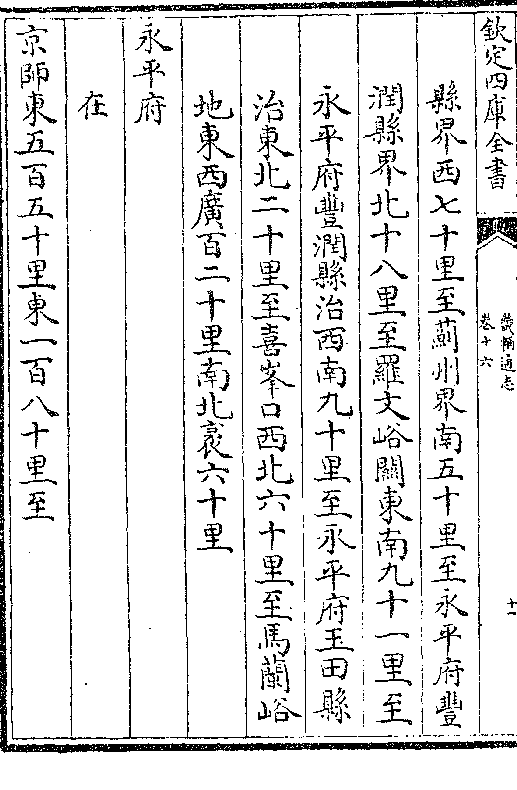 欽定四庫全書
畿輔通志
卷十六
十一
縣界西七十里至薊州界南五十里至永平府豐
潤縣界北十八里至羅文峪關東南九十一里至
永平府豐潤縣治西南九十里至永平府玉田縣
治東北二十里至喜峯口西北六十里至馬蘭峪
地東西廣百二十里南北袤六十里
永平府
在
京師東五百五十里東一百八十里至